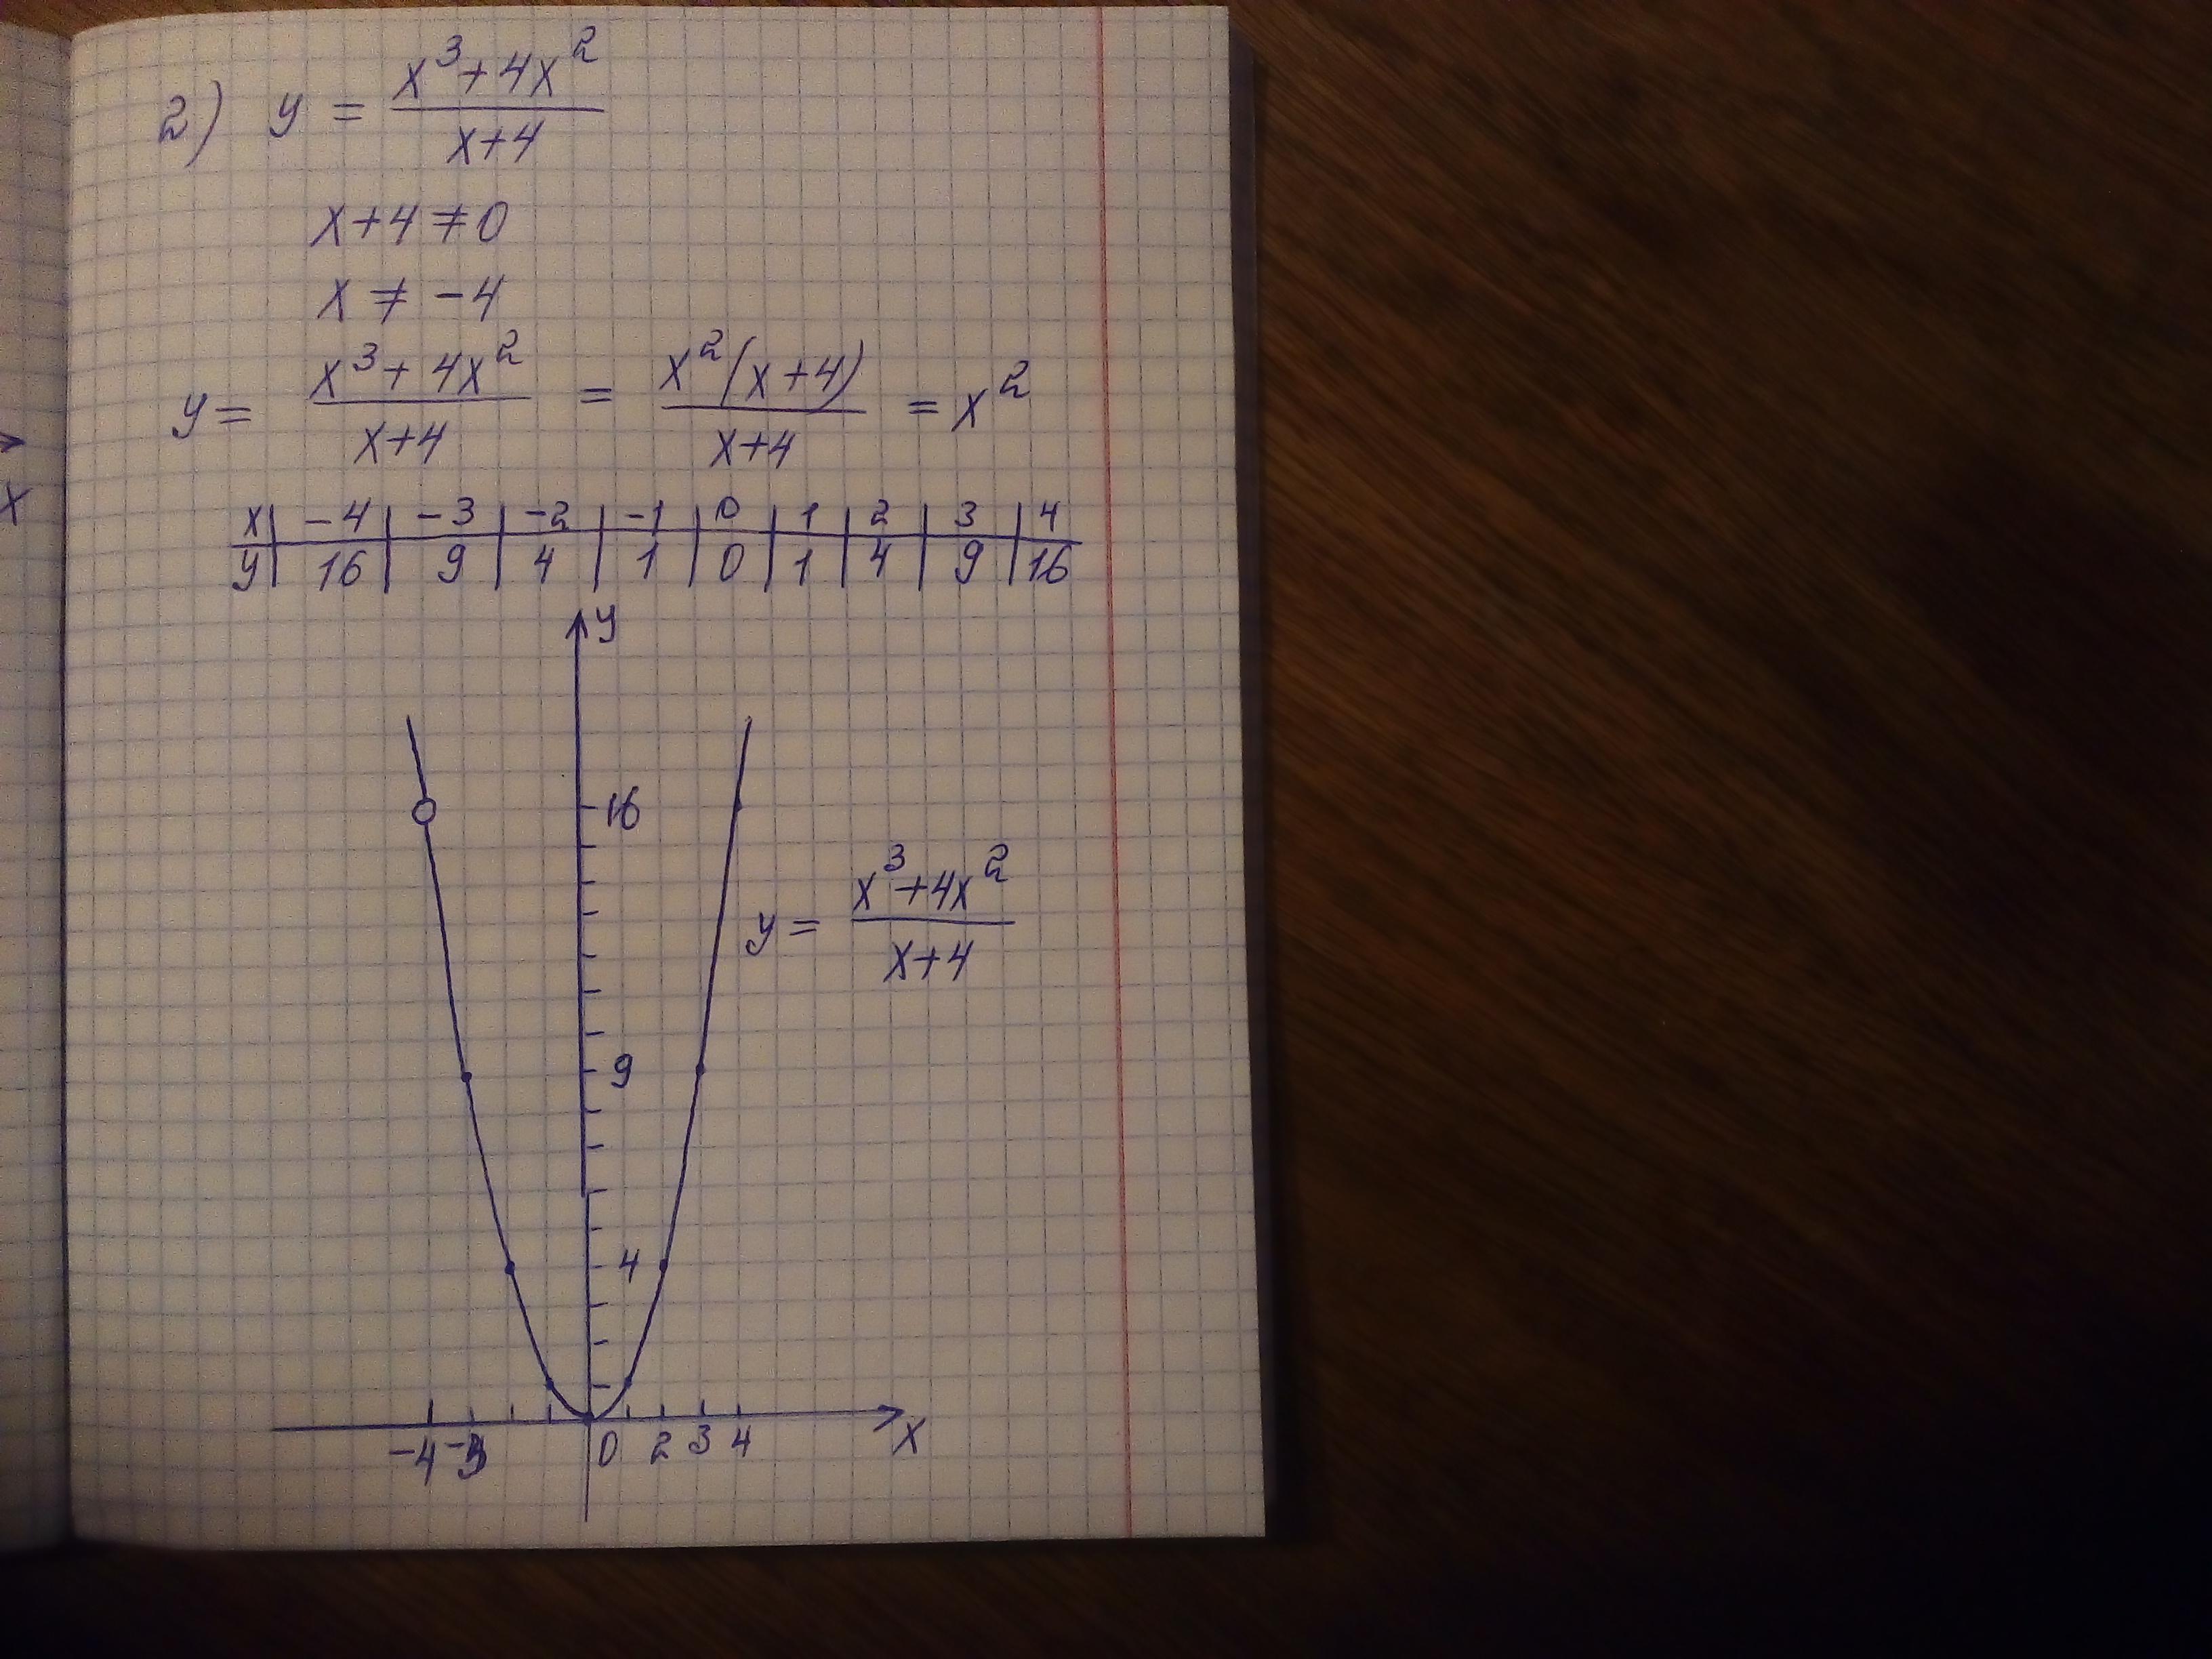 2) y = (x³+4x²)/(x+4)
x+4≠0
x ≠ -4
y = (x³+4x²)/(x+4) = (x²(x+4))/(x+4) = x²
x | -4 | -3 | -2 | -1 | 0 | 1 | 2 | 3 | 4
y | 16 | 9 | 4 | 1 | 0 | 1 | 4 | 9 | 16
x
y
16
y = (x³+4x²)/(x+4)
9
4
-4 -3 0 2 3 4 x